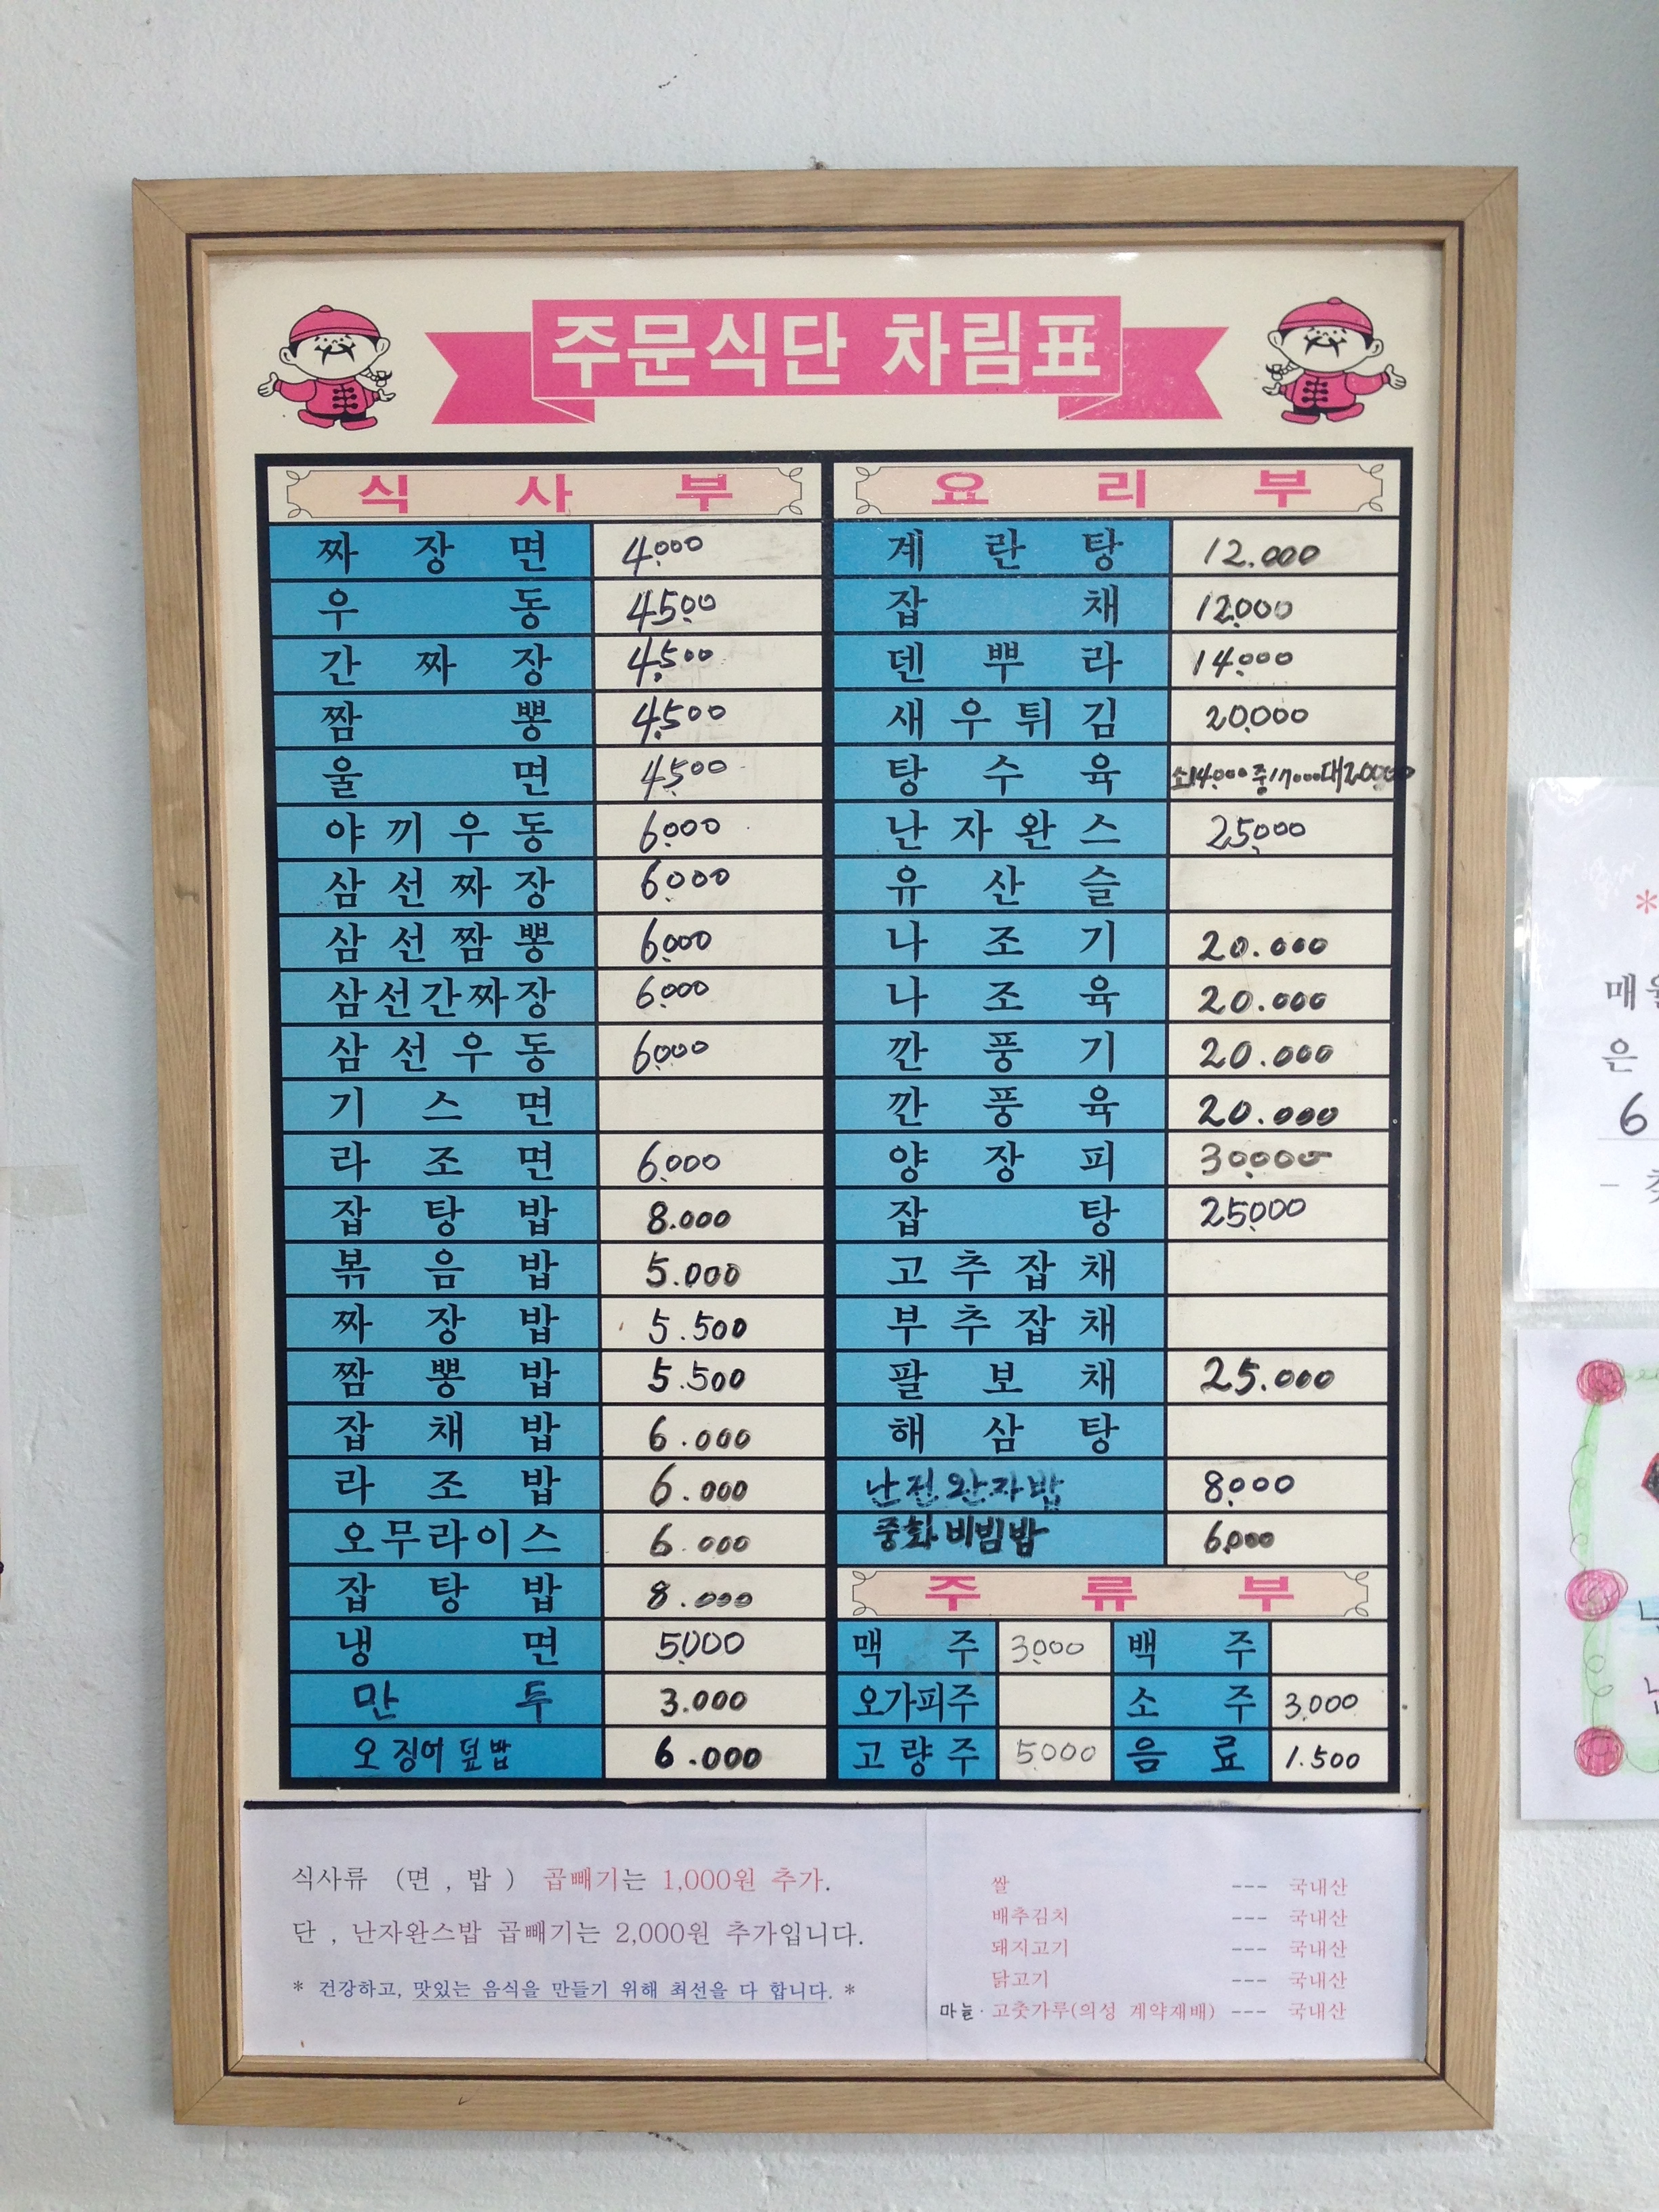 주문식단 차림표
식사부
짜장면 4000
우동 4500
간짜장 4,500
짬뽕 4500
울면 4500
야끼우동 6000
삼선짜장 6000
삼선짬뽕 6000
삼선간짜장 6000
삼선우동 6000
기스면
라조면 6000
잡탕밥 8.000
볶음밥 5.000
짜장밥 5.500
짬뽕밥 5.500
잡채밥 6.000
라조밥 6.000
오무라이스 6.000
잡탕밥 8.000
냉면 5000
만두 3.000
오징어덮밥 6.000
요리부
계란탕 12.000
잡채 12000
덴뿌라 14000
새우튀김 20000
탕수육 소14000 중17000 대20000
난자완스 25000
유산슬
나조기 20.000
나조육 20.000
깐풍기 20.000
깐풍육 20.000
양장피 30000
잡탕 25000
고추잡채
부추잡채
팔보채 25.000
해삼탕
난전완자밥 8000
중화비빔밥 6000
주류부
맥주 3000 백주
오가피주 소주 3,000
고량주 5000 음료 1.500
식사류 (면 , 밥 ) 곱빼기는 1,000원 추가.
단 , 난자완스밥 곱빼기는 2,000원 추가입니다.
* 건강하고, 맛있는 음식을 만들기 위해 최선을 다 합니다. *
쌀 --- 국내산
배추김치 --- 국내산
돼지고기 --- 국내산
닭고기 --- 국내산
마늘· 고춧가루(의성 계약재배) --- 국내산
*
은
6